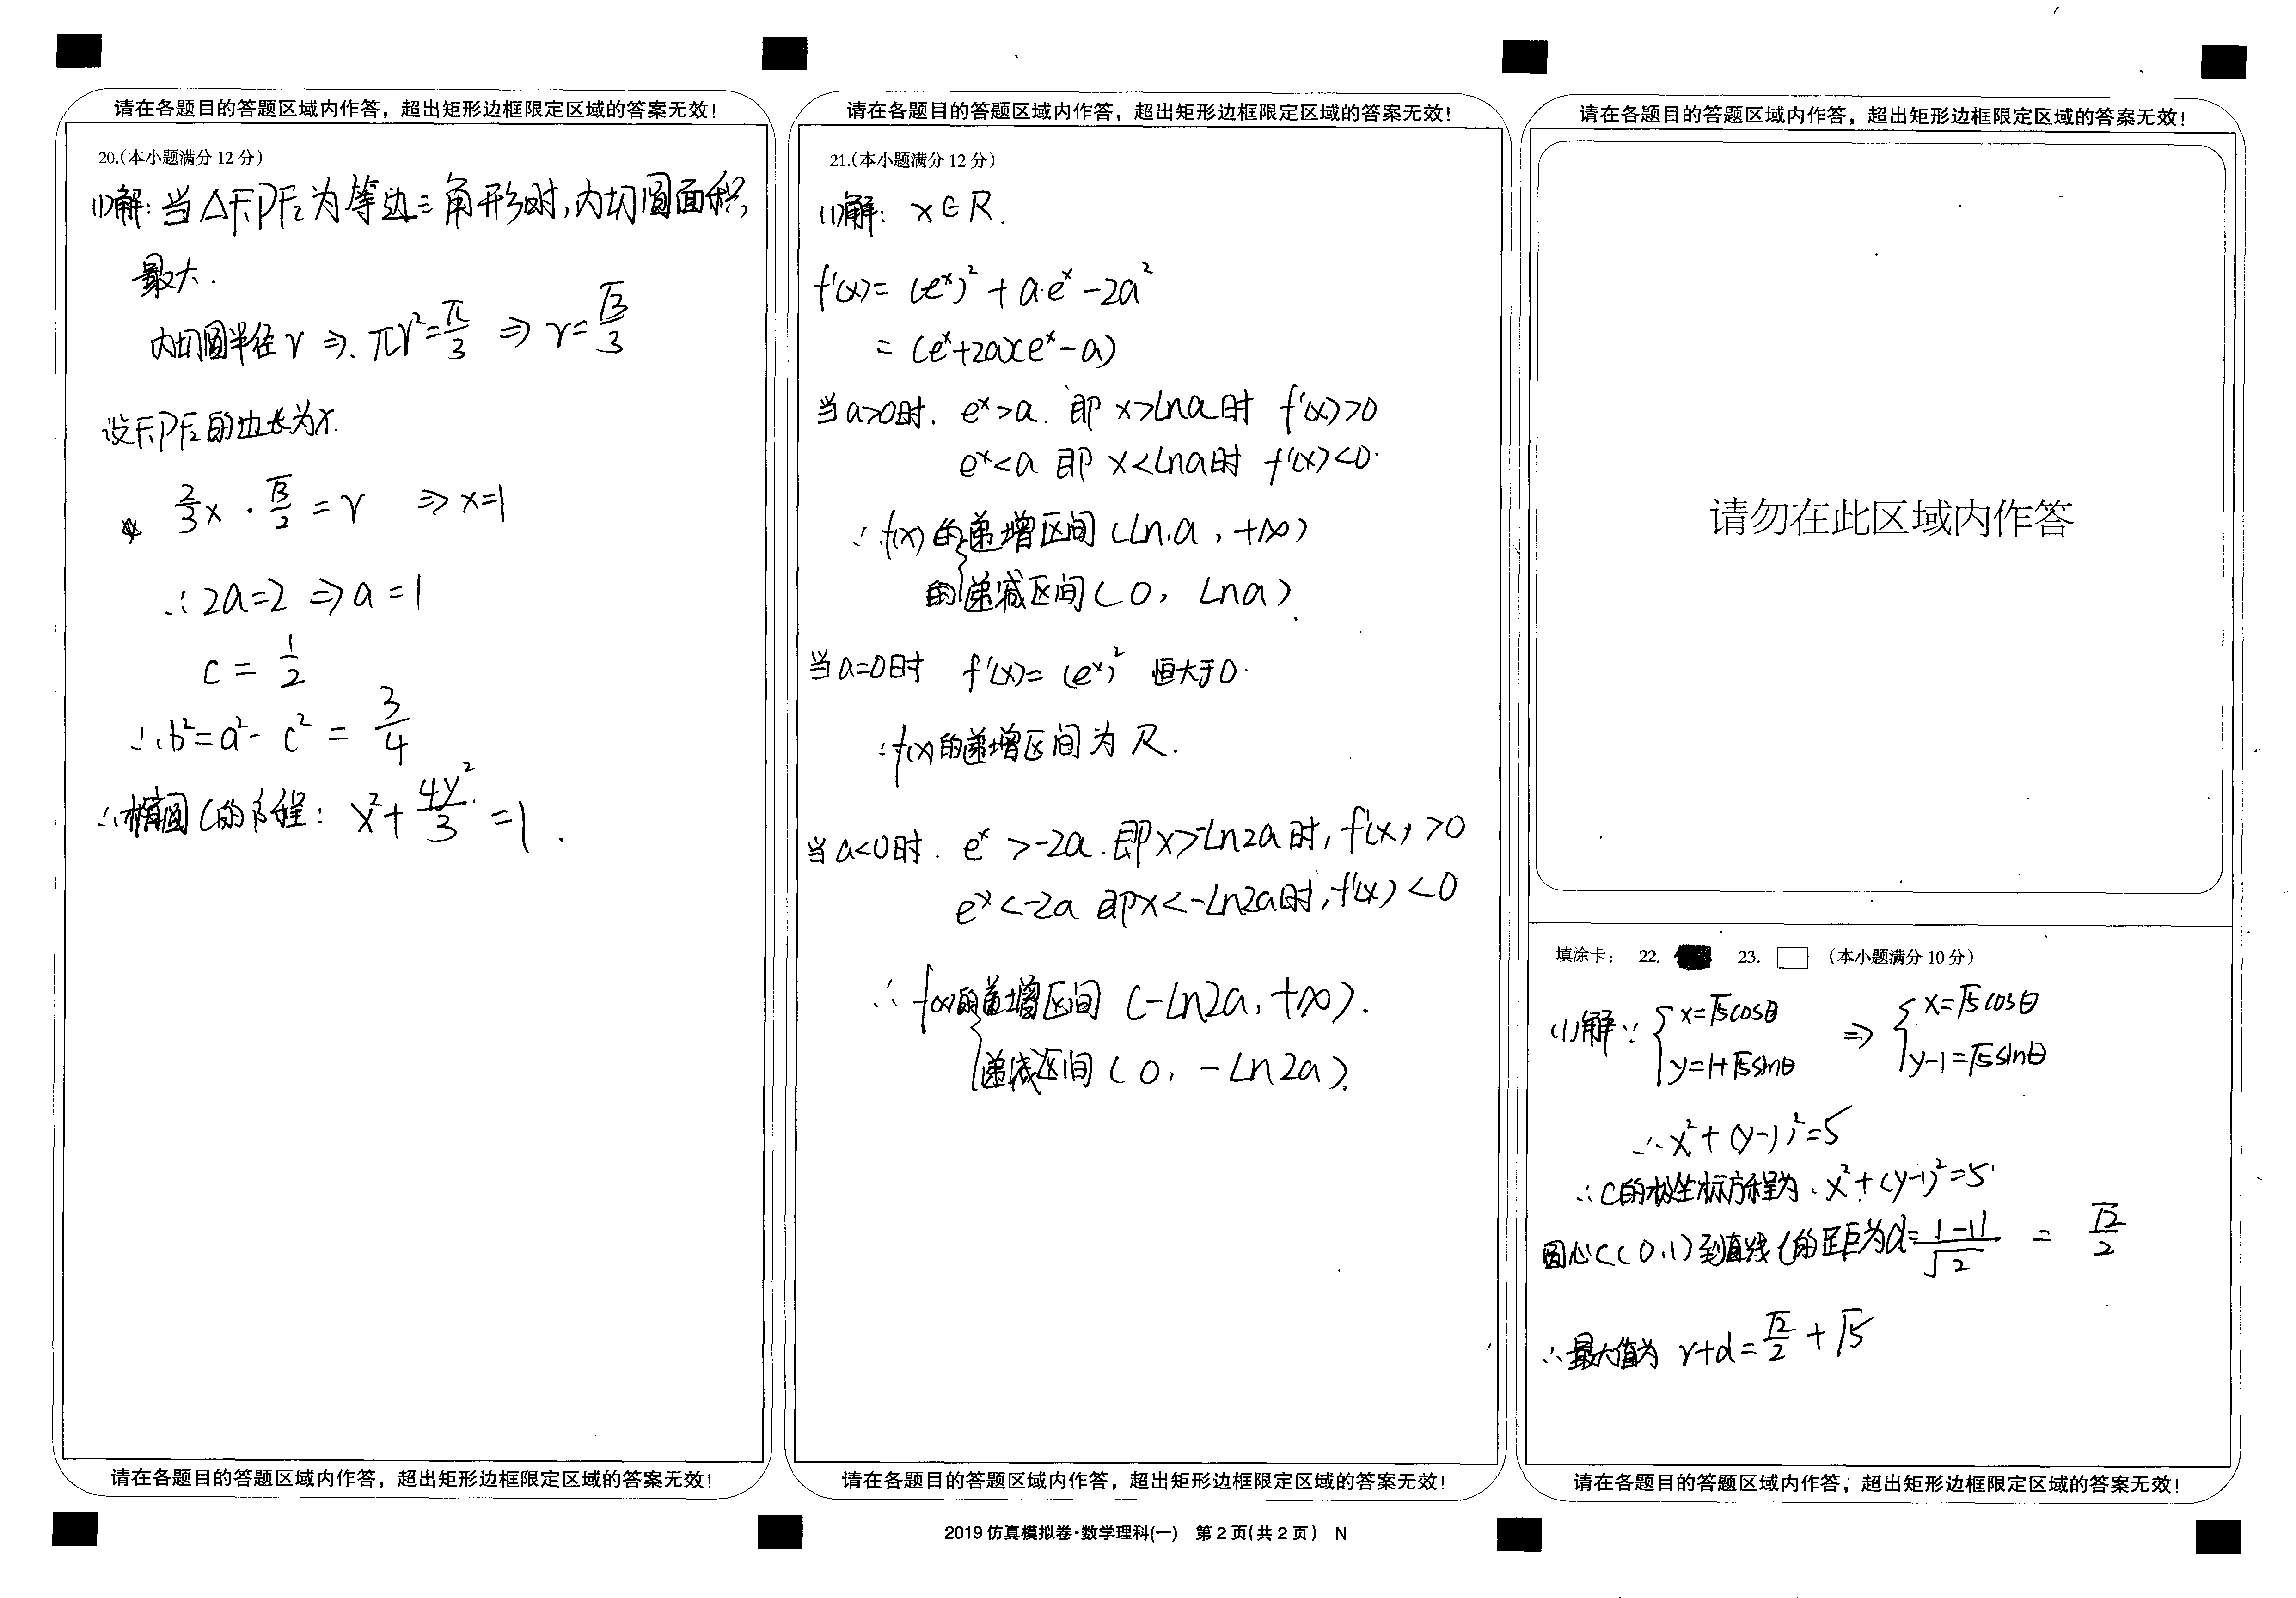 请在各题目的答题区域内作答，超出矩形边框限定区域的答案无效！
20.(本小题满分12分)
(1)解：当△F₁PF₂为等边三角形时，内切圆面积，
最大．
内切圆半径r ⇒. πr²=π/3 ⇒ r=√3/3
设F₁PF₂的边长为x.
2/3x · √3/2 = r ⇒ x=1
∴2a=2 ⇒ a=1
c = 1/2
∴b²=a²-c² = 3/4
∴椭圆C的方程： x²+4y²/3=1 .
请在各题目的答题区域内作答，超出矩形边框限定区域的答案无效！
请在各题目的答题区域内作答，超出矩形边框限定区域的答案无效！
21.(本小题满分12分)
(1)解： x∈R.
f'(x)= (eˣ)²+a·eˣ-2a²
= (eˣ+2a)(eˣ-a)
当a>0时. eˣ>a. 即 x>Lna时 f'(x)>0
eˣ<a 即 x<Lna时 f'(x)<0.
∴f(x)的递增区间(Lna，+∞)
的递减区间(0，Lna).
当a=0时 f'(x)=(eˣ)² 恒大于0.
∴f(x)的递增区间为R.
当a<0时. eˣ>-2a.即x>-Ln2a时，f'(x)>0
eˣ<-2a 即x<-Ln2a时，f'(x)<0
∴f(x)的递增区间 (-Ln2a，+∞).
递减区间(0，-Ln2a).
请在各题目的答题区域内作答，超出矩形边框限定区域的答案无效！
请在各题目的答题区域内作答，超出矩形边框限定区域的答案无效！
请勿在此区域内作答
填涂卡： 22. 23. (本小题满分10分)
(1)解∵ {x=√5cosθ y=1+√5sinθ ⇒ {x=√5cosθ y-1=√5sinθ
∴x²+(y-1)²=5
∴C的极坐标方程为.x²+(y-1)²=5.
圆心C(0,1)到直线l的距为d=|-1|/√2 = √2/2
∴最大值为 r+d=√2/2+√5
请在各题目的答题区域内作答；超出矩形边框限定区域的答案无效！
2019仿真模拟卷·数学理科(一) 第2页(共2页) N